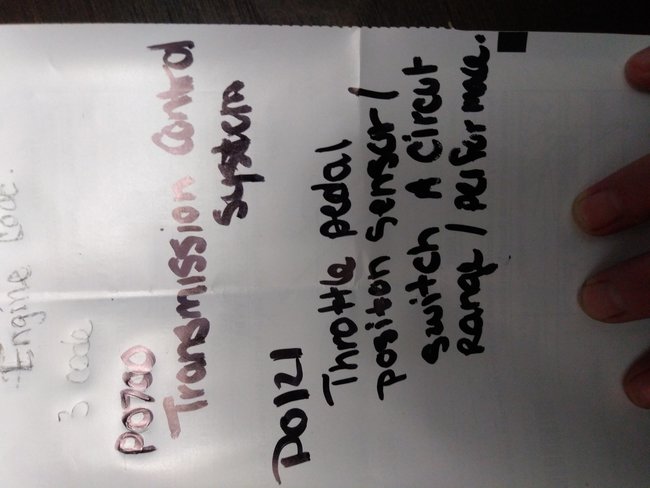 Engine Code.
3 code
P0700
Transmission control
system
P0121
Throttle pedal
position senser /
switch A circut
Range / performance.